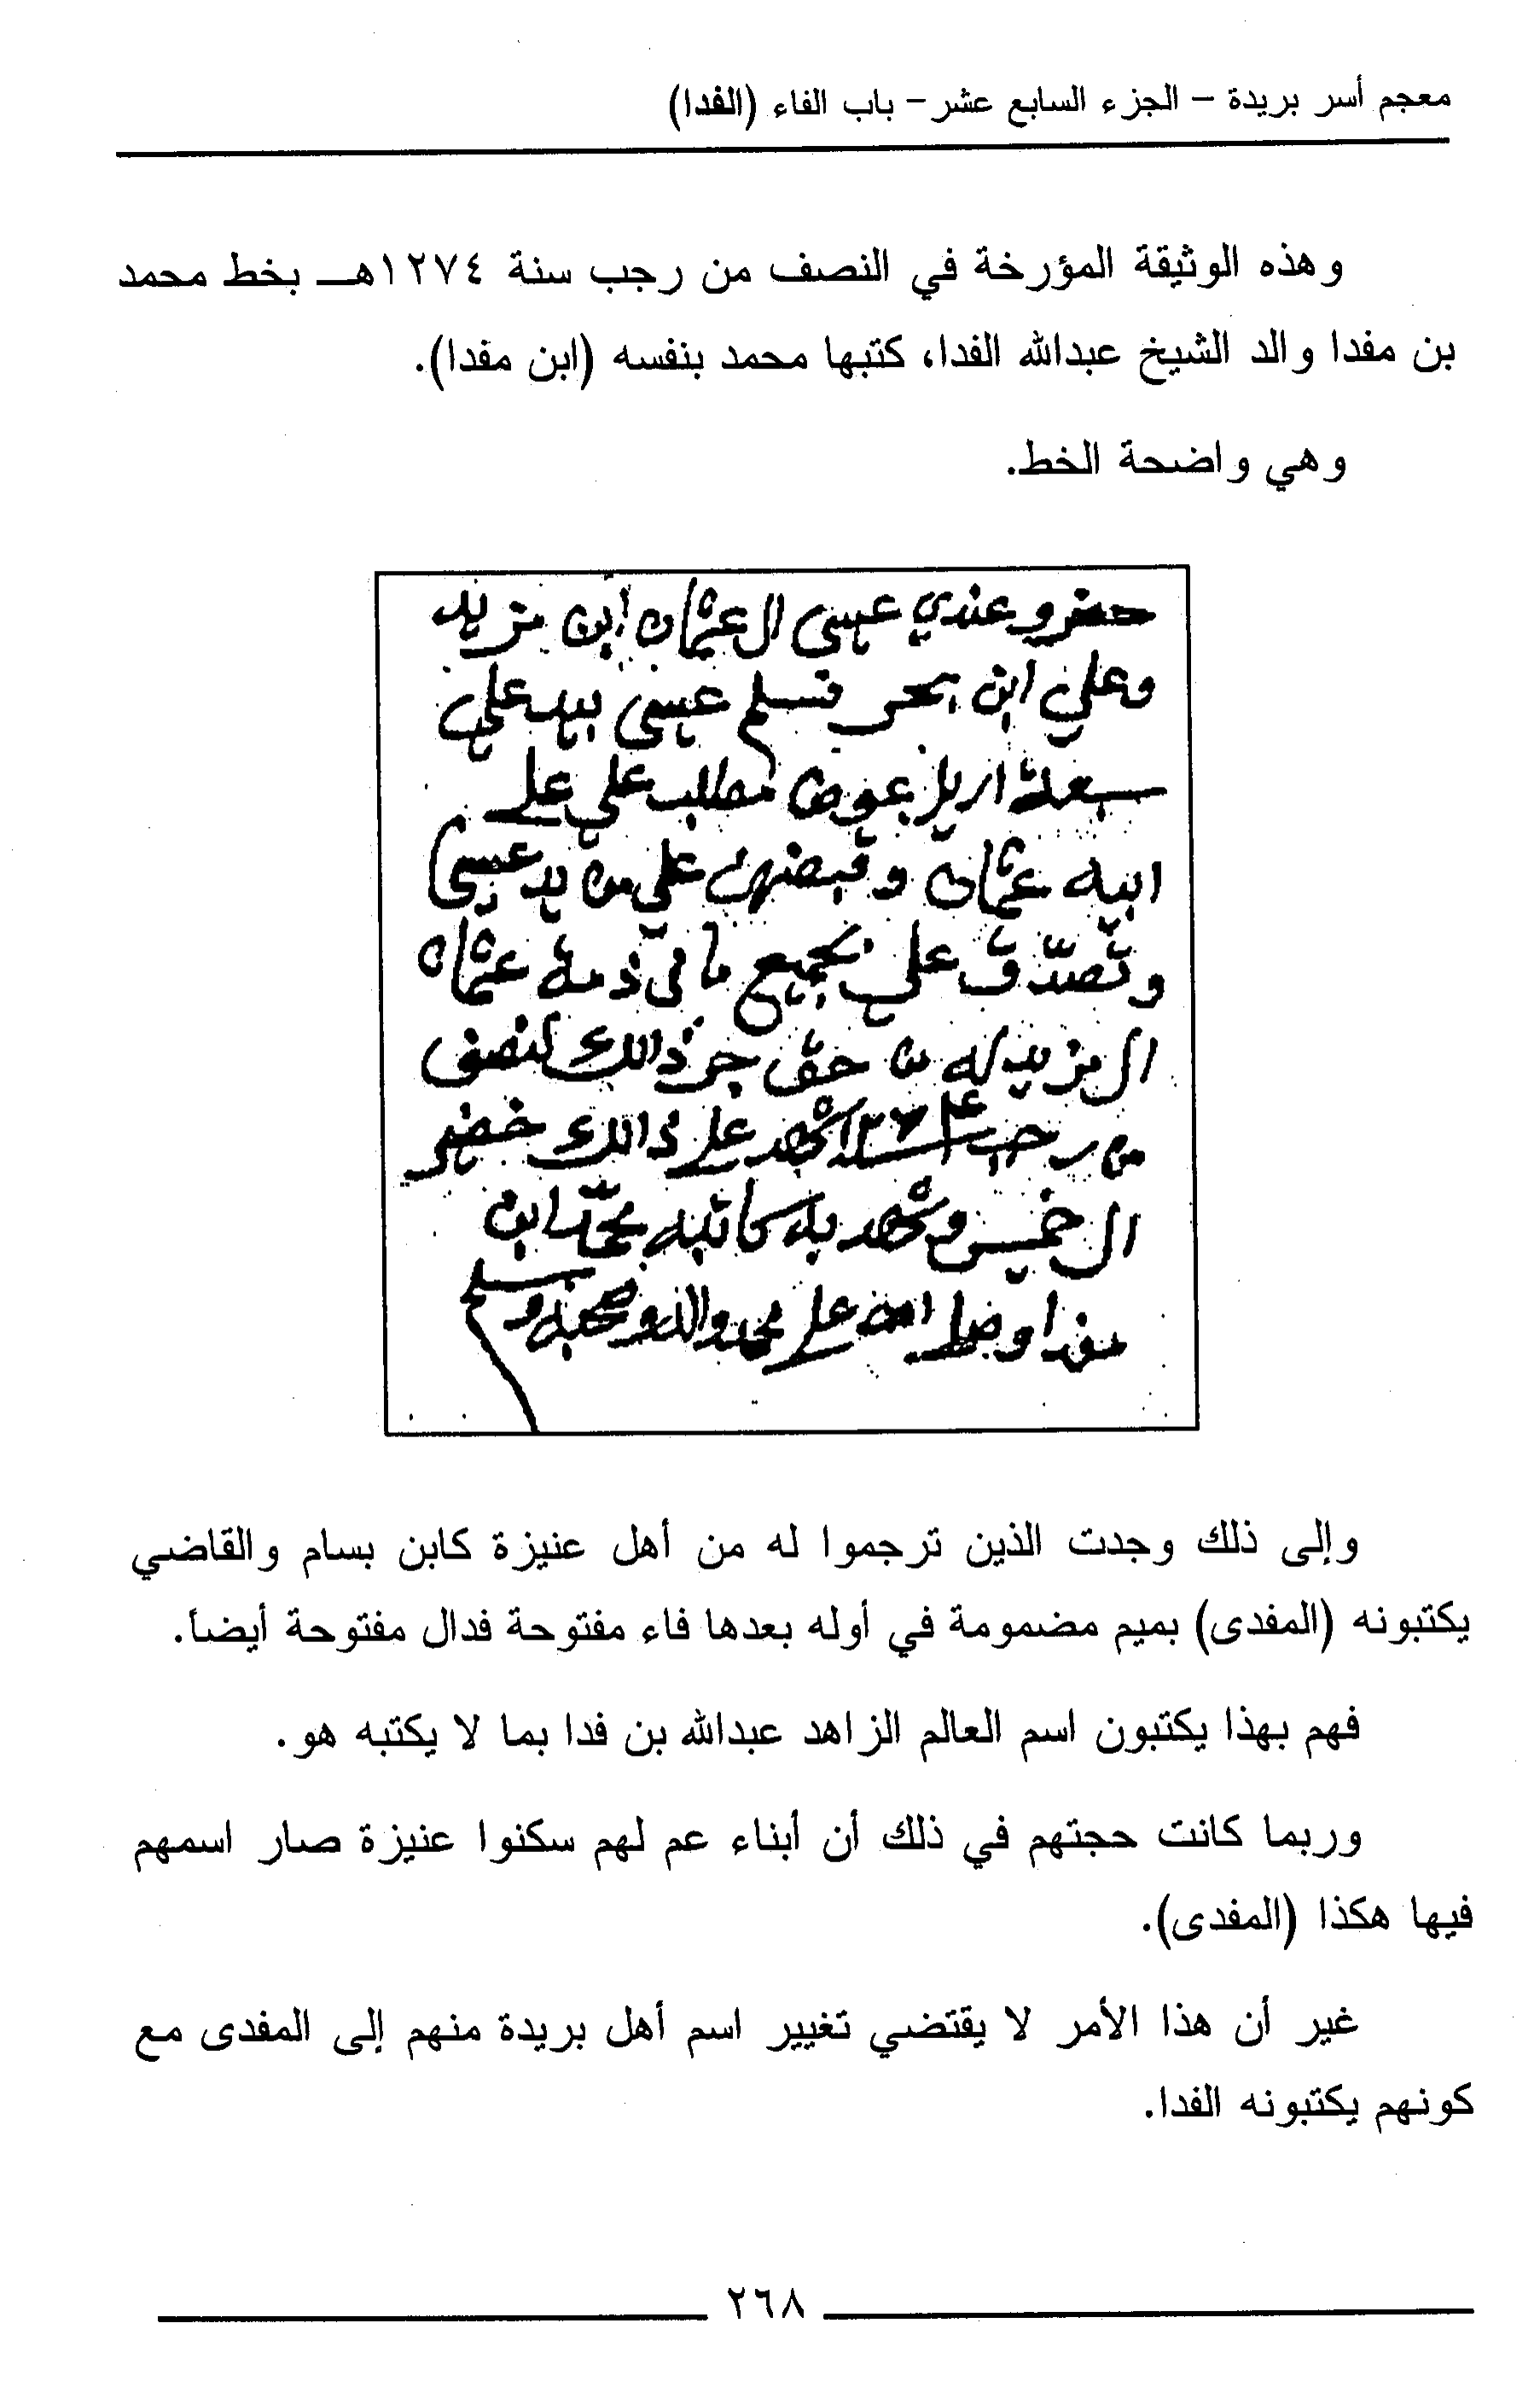 معجم أسر بريدة – الجزء السابع عشر – باب الفاء (الفدا)
وهذه الوثيقة المؤرخة في النصف من رجب سنة ١٢٧٤هـ بخط محمد
بن مفدا والد الشيخ عبدالله الفدا، كتبها محمد بنفسه (ابن مفدا).
وهي واضحة الخط.
حضرو عندي عيسى ال عثمان ابن مزيد
وعلي ابن تسلم عيسى بيد علي
سبعة اريل عوض مطلب علي على
ابيه عثمان وقبضهن علي من يد عيسى
وتصدق علي بجميع ما في ذمة عثمان
ال مزيد له من حق جرى ذالك لنصف
من رجب ١٢٧٤ شهد على ذالك خضير
ال خميس وشهد به كاتبه محمد ابن
مفدا وصلى الله على محمد واله وصحبه وسلم
وإلى ذلك وجدت الذين ترجموا له من أهل عنيزة كابن بسام والقاضي
يكتبونه (المفدى) بميم مضمومة في أوله بعدها فاء مفتوحة فدال مفتوحة أيضاً.
فهم بهذا يكتبون اسم العالم الزاهد عبدالله بن فدا بما لا يكتبه هو.
وربما كانت حجتهم في ذلك أن أبناء عم لهم سكنوا عنيزة صار اسمهم
فيها هكذا (المفدى).
غير أن هذا الأمر لا يقتضي تغيير اسم أهل بريدة منهم إلى المفدى مع
كونهم يكتبونه الفدا.
٢٦٨